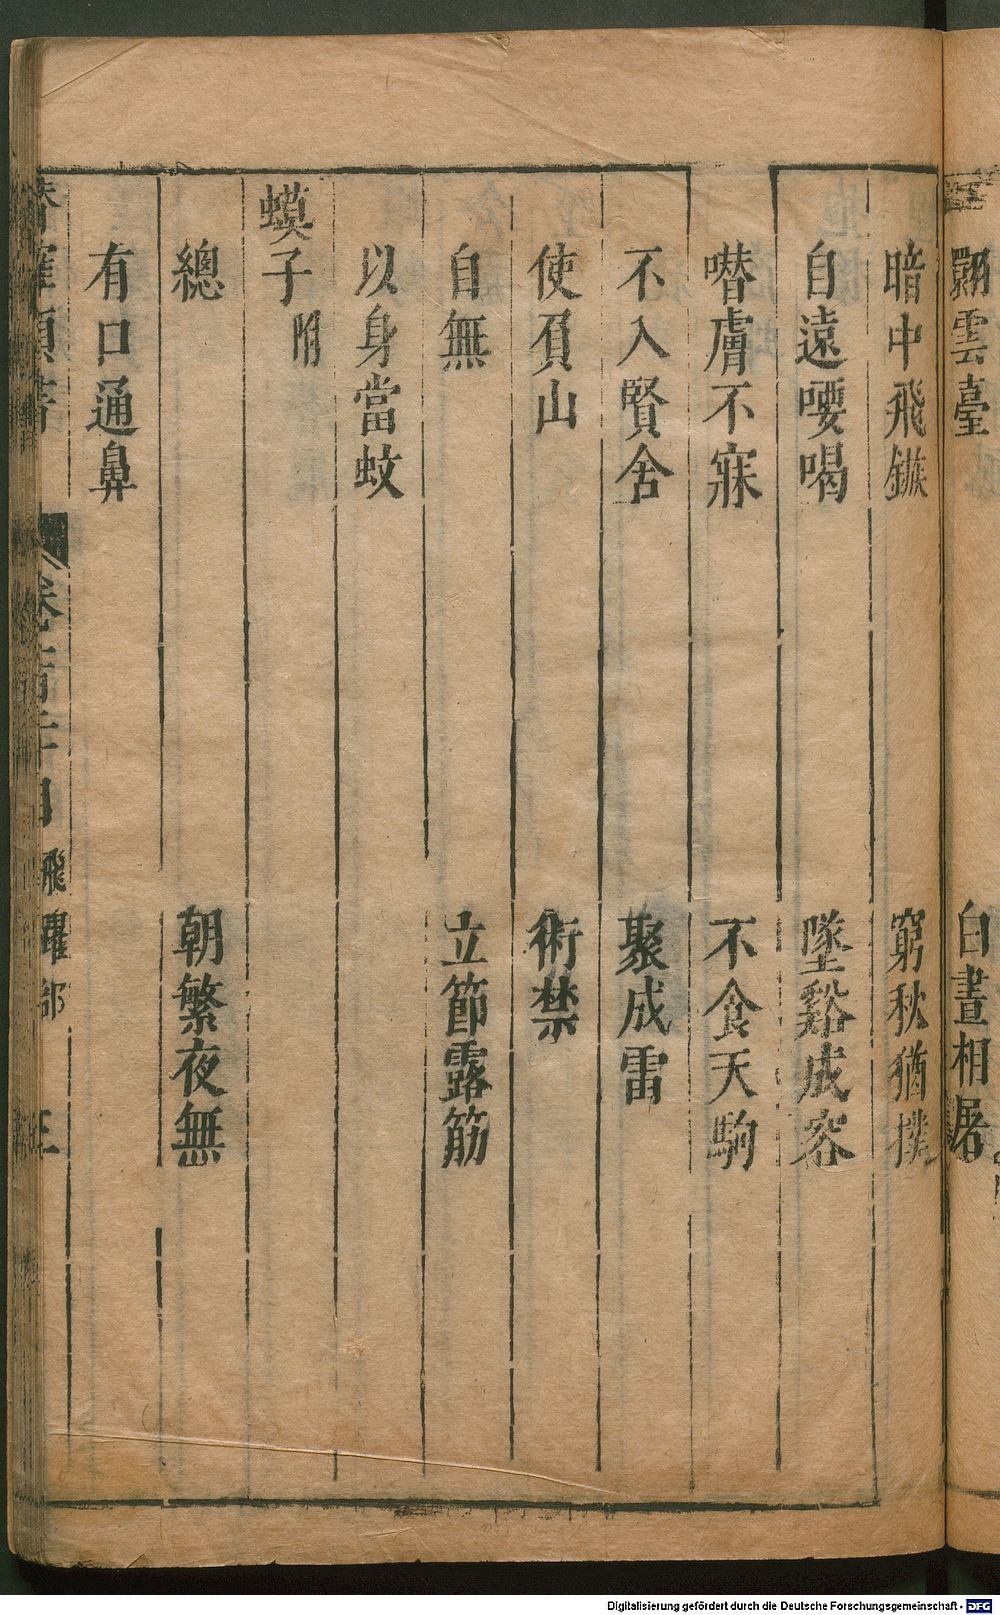 翾雲臺　白晝相屠
暗中飛鏃　窮秋猶撲
自遠嘤喝　墜谿成容
噆膚不寐　不食天駒
不入賢舍　聚成雷
使負山　術禁
自無　立節露筋
以身當蚊
蟆子附
總　朝繁夜無
有口通鼻
飛躍部
Digitalisierung gefördert durch die Deutsche Forschungsgemeinschaft - DFG